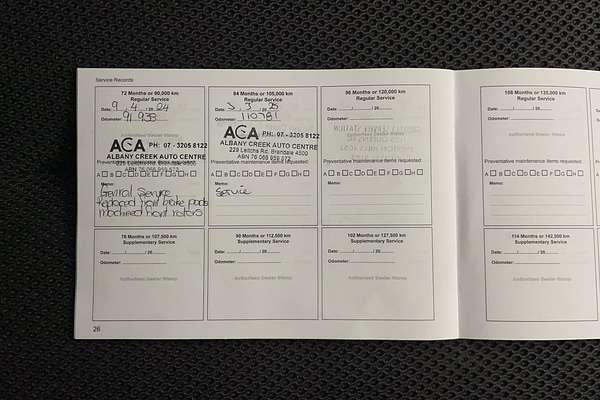 Service Records
72 Months or 90,000 km
Regular Service
Date: 9 / 4 / 20 24
Odometer: 91 938
Authorised Dealer Stamp
ACA PH: 07 - 3205 8122
ALBANY CREEK AUTO CENTRE
225 Leitchs Rd, Brendale 4500
ABN 76 068 959 573
Preventative maintenance items requested
A B C D E F G H
Memo:
General Service
replaced front brake pads
machined front rotors
84 Months or 105,000 km
Regular Service
Date: 3 / 3 / 20 25
Odometer: 110781
ACA PH: 07 - 3205 8122
ALBANY CREEK AUTO CENTRE
225 Leitchs Rd, Brendale 4500
ABN 76 068 959 573
Preventative maintenance items requested
A B C D E F G H
Memo:
Service
96 Months or 120,000 km
Regular Service
Date: / / 20
Odometer:
Preventative maintenance items requested
A B C D E F G H
Memo:
108 Months or 135,000 km
Regular Service
Date: / / 20
Odometer:
Authorised Dealer Stamp
Preventative maintenance items requested
A B C D E F G H
Memo:
78 Months or 107,500 km
Supplementary Service
Date: / / 20
Odometer:
Authorised Dealer Stamp
90 Months or 112,500 km
Supplementary Service
Date: / / 20
Odometer:
Authorised Dealer Stamp
102 Months or 127,500 km
Supplementary Service
Date: / / 20
Odometer:
Authorised Dealer Stamp
114 Months or 142,500 km
Supplementary Service
Date: / / 20
Odometer:
Authorised Dealer Stamp
26